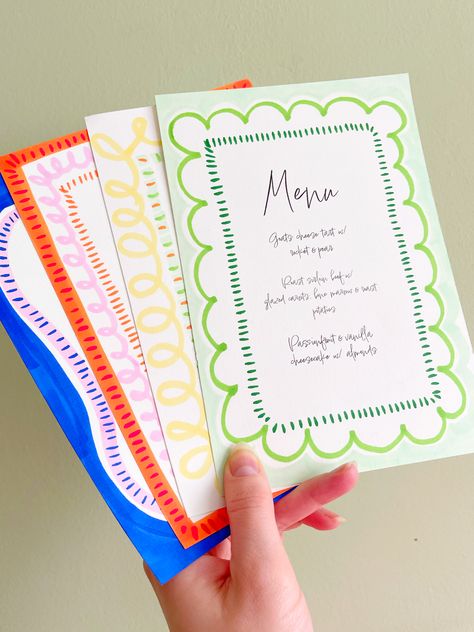 Menu
Goats cheese tart w/
rocket & pear
Roast sirloin beef w/
glazed carrots, bone marrow & roast
potatoes
Passionfruit & vanilla
cheesecake w/ almonds